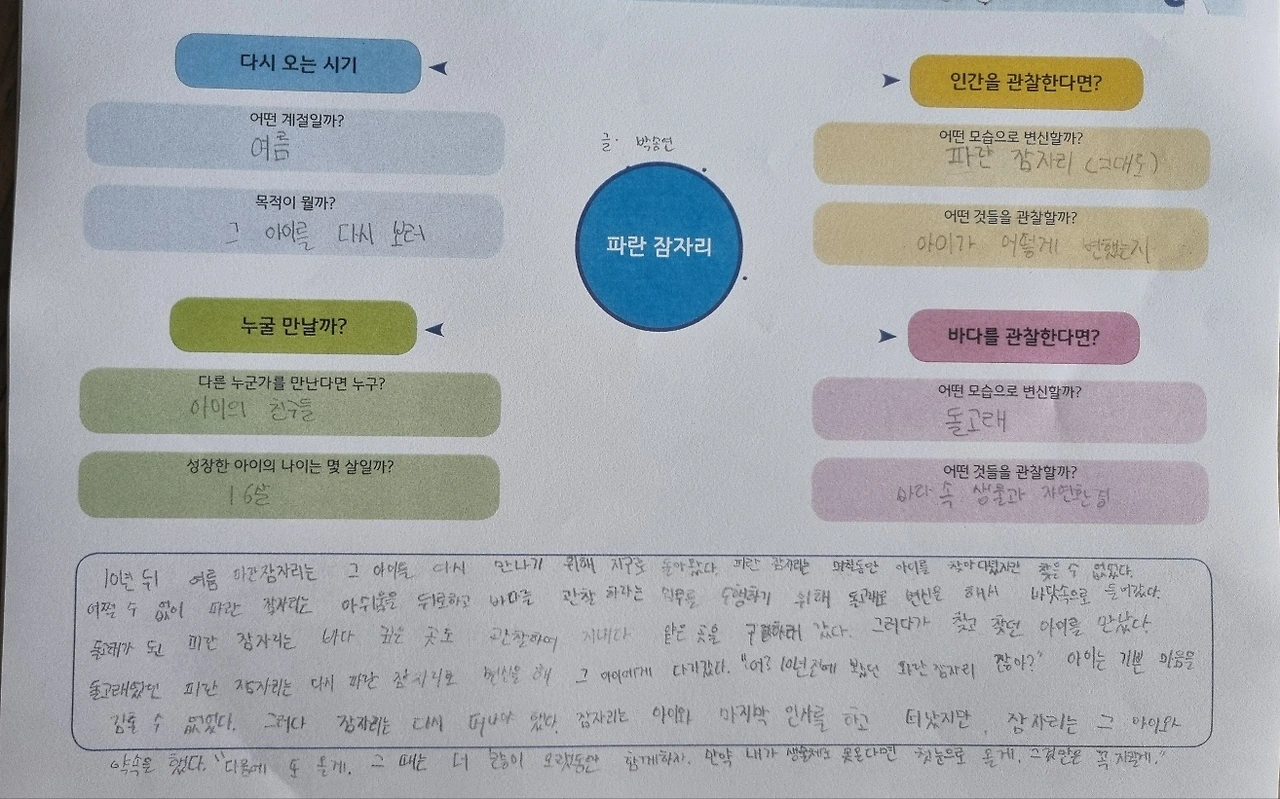 다시 오는 시기
어떤 계절일까?
여름
목적이 뭘까?
그 아이를 다시 보러
누굴 만날까?
다른 누군가를 만난다면 누구?
아이의 친구들
성장한 아이의 나이는 몇 살일까?
16살
글· 박송연
파란 잠자리
인간을 관찰한다면?
어떤 모습으로 변신할까?
파란 잠자리 (그대로)
어떤 것들을 관찰할까?
아이가 어떻게 변했는지
바다를 관찰한다면?
어떤 모습으로 변신할까?
돌고래
어떤 것들을 관찰할까?
바다 속 생물과 자연환경
10년 뒤 여름 파란잠자리는 그 아이를 다시 만나기 위해 지구로 돌아왔다. 파란 잠자리는 며칠동안 아이를 찾아다녔지만 찾을 수 없었다.
어쩔 수 없이 파란 잠자리는 아쉬움을 뒤로하고 바다를 관찰 하라는 임무를 수행하기 위해 돌고래로 변신을 해서 바닷속으로 들어갔다.
돌고래가 된 파란 잠자리는 바다 깊은 곳도 관찰하며 지내다 얕은 곳을 갔다. 그러다가 찾고 찾던 아이를 만났다.
돌고래였던 파란 잠자리는 다시 파란 잠자리로 변신을 해 그 아이에게 다가갔다. "어? 10년전에 봤던 파란 잠자리 잖아?" 아이는 기쁜 마음을
감출 수 없었다. 그러나 잠자리는 다시 떠나야 했다. 잠자리는 아이와 마지막 인사를 하고 떠났지만, 잠자리는 그 아이와
약속을 했다. "다음에 또 올게. 그 때는 더 많이 오랫동안 함께하자. 만약 내가 생물체로 못온다면 첫눈으로 올게. 그것만은 꼭 지킬게."